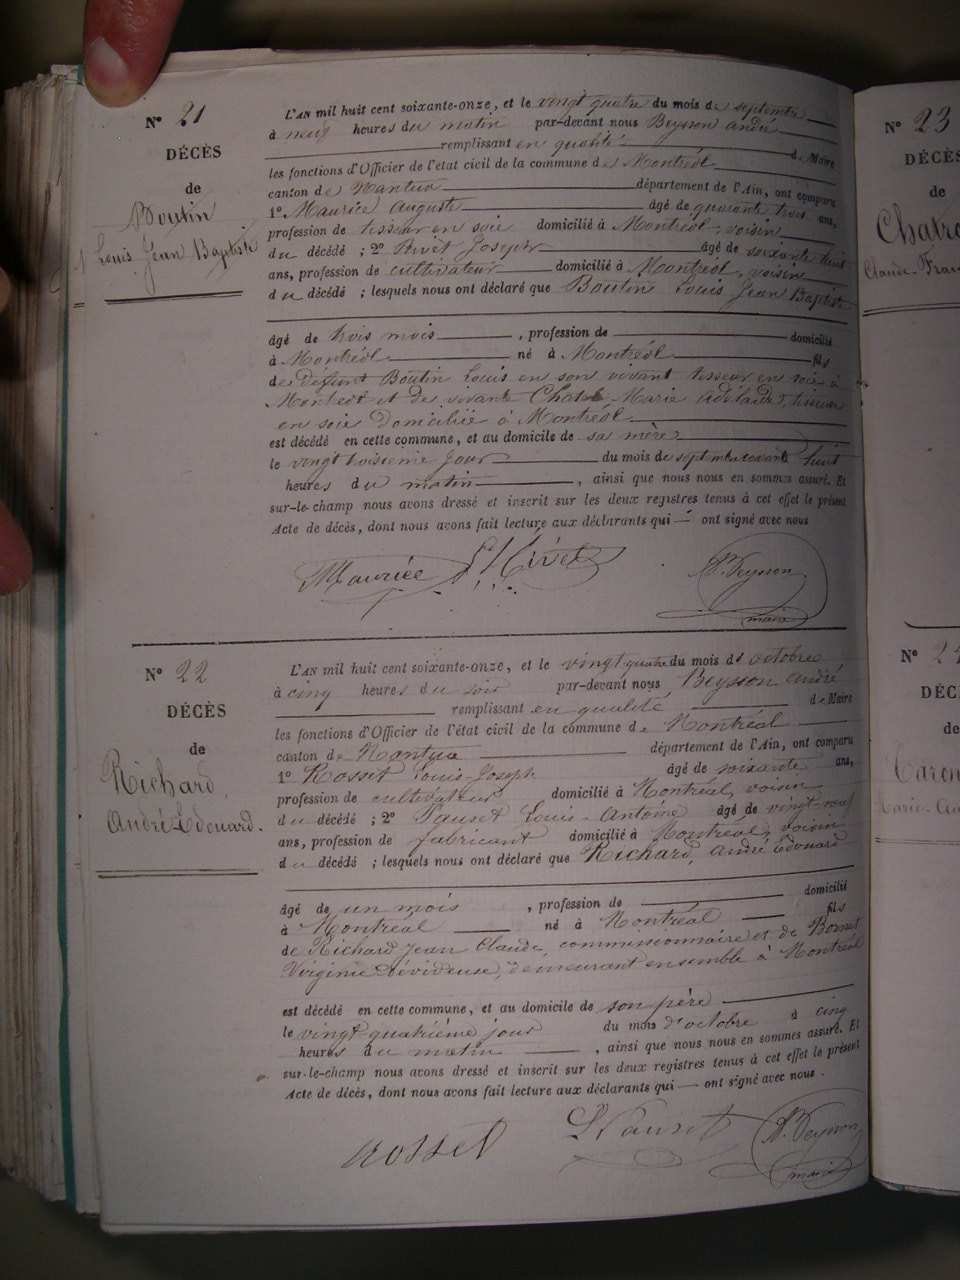 N° 21
DÉCÈS
de
Boutin
Louis Jean Baptiste
L'AN mil huit cent soixante-onze, et le vingt quatre du mois de septembre
à neuf heures du matin par-devant nous Beysson André
remplissant en qualité de Maire
les fonctions d'Officier de l'état civil de la commune de Montréal
canton de Nantua département de l'Ain, ont comparu
1° Maurice Auguste âgé de quarante trois ans,
profession de tisseur en soie domicilié à Montréal, voisin
du décédé ; 2° Joseph âgé de soixante huit
ans, profession de cultivateur domicilié à Montréal, voisin
du décédé ; lesquels nous ont déclaré que Boutin Louis Jean Baptiste
âgé de trois mois , profession de domicilié
à Montréal né à Montréal fils
de défunt Boutin Louis en son vivant tisseur en soie à
Montréal et de vivante Marie Adélaïde, tisseuse
en soie domiciliée à Montréal
est décédé en cette commune, et au domicile de sa mère
le vingt troisième jour du mois de septembre courant huit
heures du matin , ainsi que nous nous en sommes assuré. Et
sur-le-champ nous avons dressé et inscrit sur les deux registres tenus à cet effet le présent
Acte de décès, dont nous avons fait lecture aux déclarants qui — ont signé avec nous
Maurice A. Beysson
maire
N° 22
DÉCÈS
de
Richard
André Edouard.
L'AN mil huit cent soixante-onze, et le vingt quatre du mois d'octobre
à cinq heures du soir par-devant nous Beysson André
remplissant en qualité de Maire
les fonctions d'Officier de l'état civil de la commune de Montréal
canton de Nantua département de l'Ain, ont comparu
1° Rosset Louis-Joseph âgé de soixante ans,
profession de cultivateur domicilié à Montréal, voisin
du décédé ; 2° Louis-Antoine âgé de vingt-neuf
ans, profession de fabricant domicilié à Montréal, voisin
du décédé ; lesquels nous ont déclaré que Richard, André Edouard
âgé de un mois , profession de domicilié
à Montréal né à Montréal fils
de Richard Jean Claude, commissionnaire et de Bornet
Virginie dévideuse, demeurant ensemble à Montréal
est décédé en cette commune, et au domicile de son père
le vingt-quatrième jour du mois d'octobre à cinq
heures du matin , ainsi que nous nous en sommes assuré. Et
sur-le-champ nous avons dressé et inscrit sur les deux registres tenus à cet effet le présent
Acte de décès, dont nous avons fait lecture aux déclarants qui — ont signé avec nous.
Rosset A. Beysson
maire
N° 23
DÉCÈS
de
Claude-Fran
N°
DÉC
de